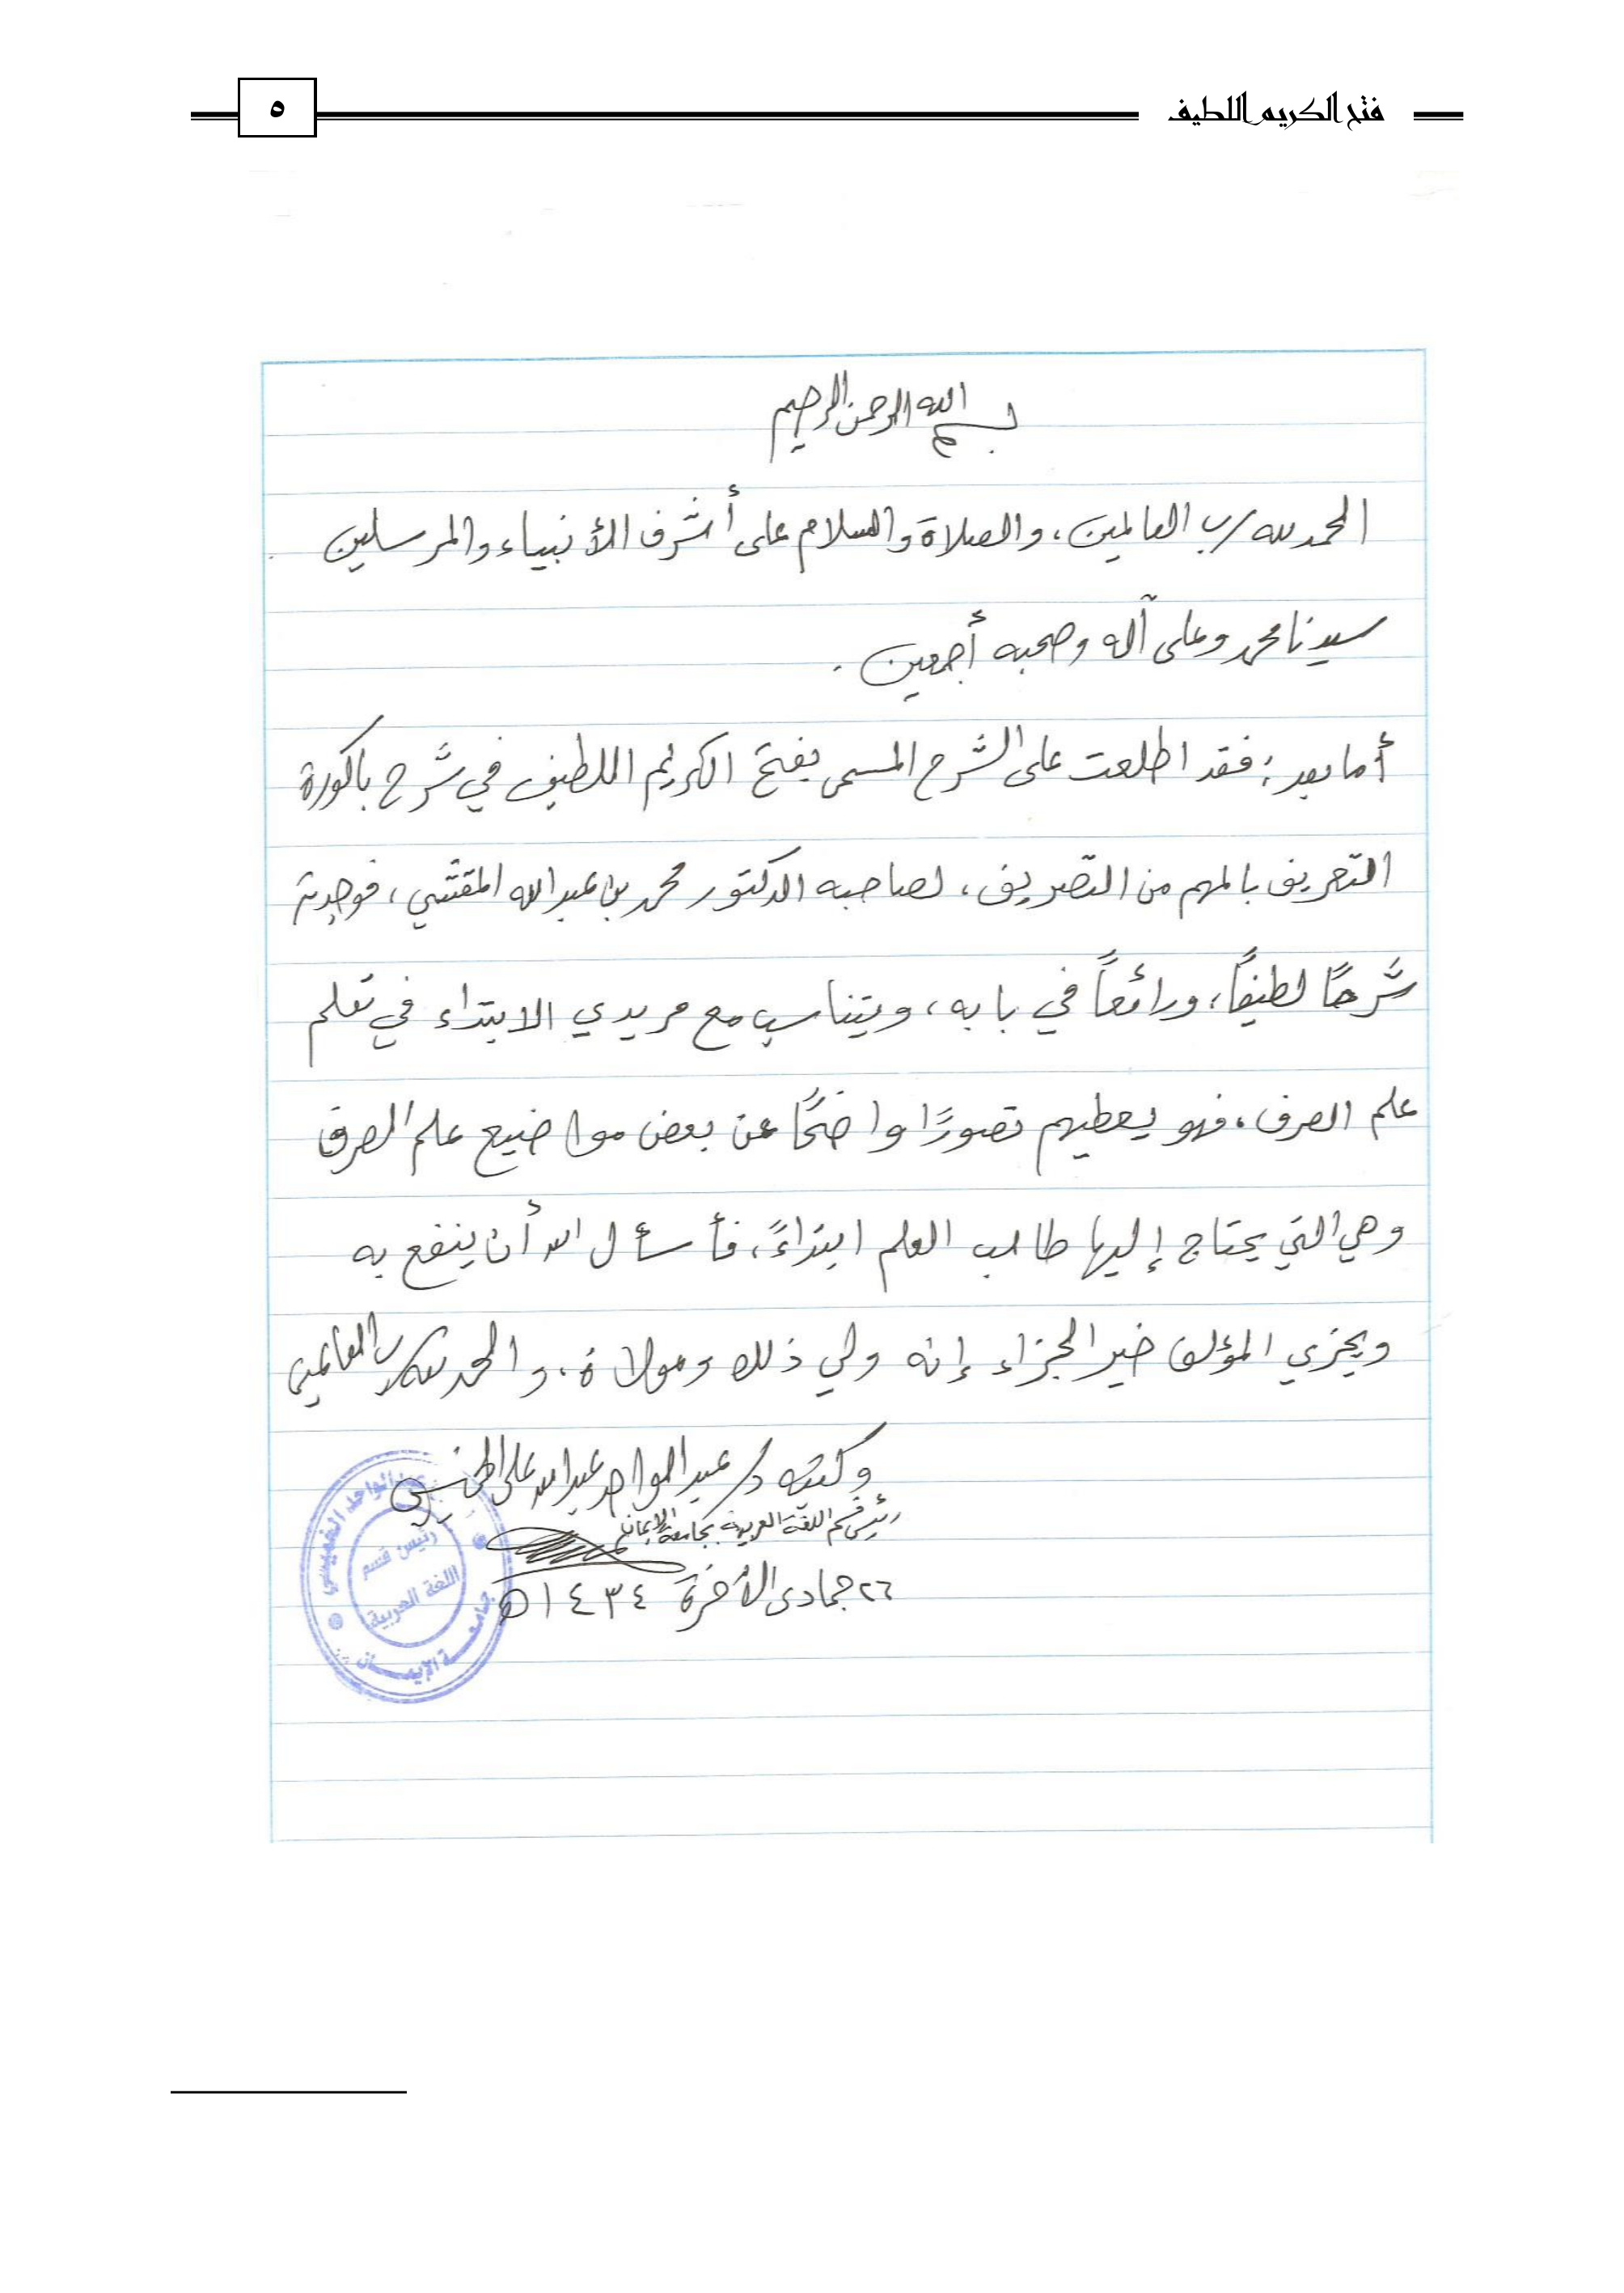 فتح الكريم اللطيف
٥
بسم الله الرحمن الرحيم
الحمد لله رب العالمين، والصلاة والسلام على أشرف الأنبياء والمرسلين
سيدنا محمد وعلى آله وصحبه أجمعين.
أما بعد: فقد اطلعت على الشرح المسمى بفتح الكريم اللطيف في شرح باكورة
التعريف بالمهم من التصريف، لصاحبه الدكتور محمد بن عبد الله المقشي، فوجدته
شرحًا لطيفًا، ورائعاً في بابه، ويتناسب مع مريدي الابتداء في تعلم
علم الصرف، فهو يعطيهم تصورًا واضحًا عن بعض مواضيع علم الصرف
وهي التي يحتاج إليها طالب العلم ابتداءً، فأسأل الله أن ينفع به
ويجزي المؤلف خير الجزاء إنه ولي ذلك ومولاه، والحمد لله رب العالمين
وكتبه د/ عبد الواحد عبد الله علي الخميسي
رئيس قسم اللغة العربية بجامعة الإيمان
٢٦ جمادى الأخرة ١٤٣٤ه
عبد الواحد الخميسي
رئيس قسم
اللغة العربية
جامعة الإيمان